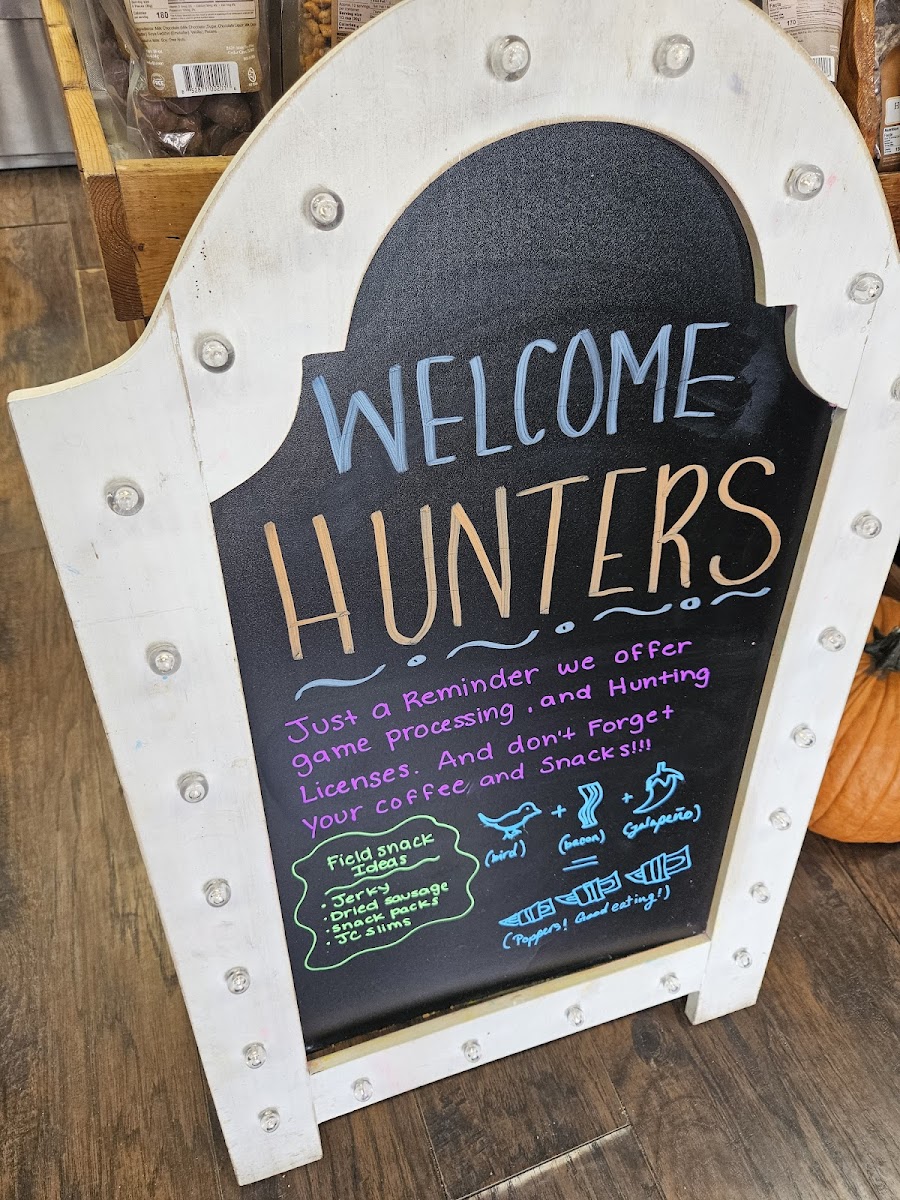 180
WELCOME
HUNTERS
Just a Reminder we offer
game processing, and Hunting
Licenses. And don't Forget
your coffee and Snacks!!!
Field snack
Ideas
· Jerky
· Dried sausage
· snack packs
· JC slims
+ +
(bird) (bacon) (jalapeño)
=
(Poppers! Good eating!)